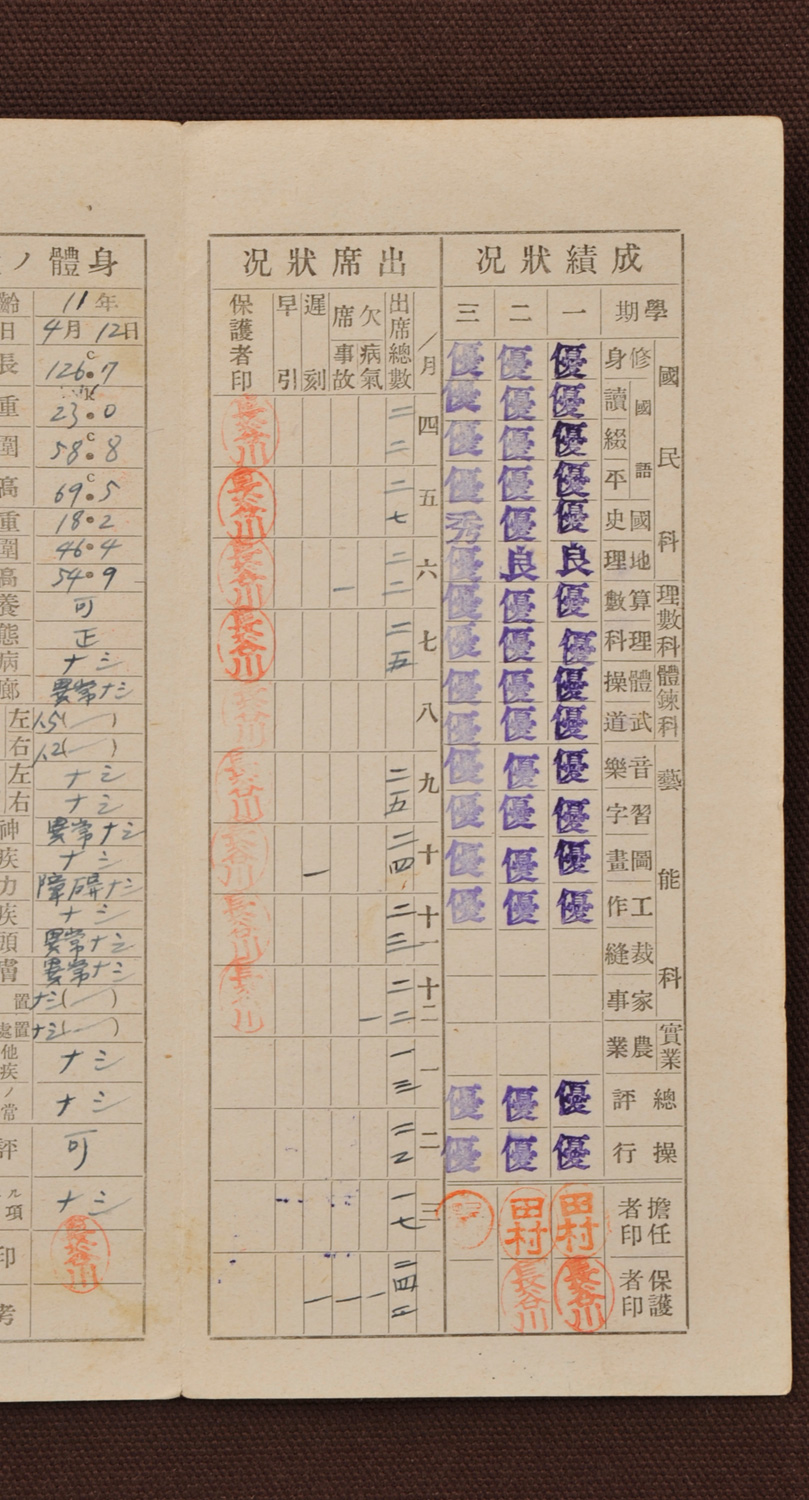 成績狀況
學期 一 二 三
國民科
修身 優 優 優
國語
讀 優 優 優
綴 優 優 優
平 優 優 優
國史 優 優 秀
地理 良 良 優
理數科
算數 優 優 優
理科 優 優 優
體鍊科
體操 優 優 優
武道 優 優 優
藝能科
音樂 優 優 優
習字 優 優 優
圖畫 優 優 優
工作 優 優 優
裁縫
家事
實業
農業
總評 優 優 優
操行 優 優 優
擔任者印 田村 田村
保護者印 長谷川 長谷川
出席狀況
月 出席總數 欠席 病氣 事故 遲刻 早引 保護者印
四 二二 長谷川
五 二七 長谷川
六 二二 一 長谷川
七 二五 長谷川
八 長谷川
九 二五 長谷川
十 二四 一 長谷川
十一 二三 長谷川
十二 二二 一 長谷川
一 一三
二 二二
三 一七
二四二 一 一 一
身體ノ
齡 11年
日 4月12日
長 126.7
重 23.0
圍 58.8
高 69.5
重 18.2
圍 46.4
高 54.9
養 可
態 正
病 ナシ
廓 異常ナシ
左 1.5( )
右 1.2( )
左 ナシ
右 ナシ
神 異常ナシ
疾 ナシ
力 障碍ナシ
疾 ナシ
頭 異常ナシ
膚 異常ナシ
置 ナシ( )
處置 ナシ( )
他疾 ナシ
ノ常 ナシ
評 可
ル項 ナシ
印 長谷川
考